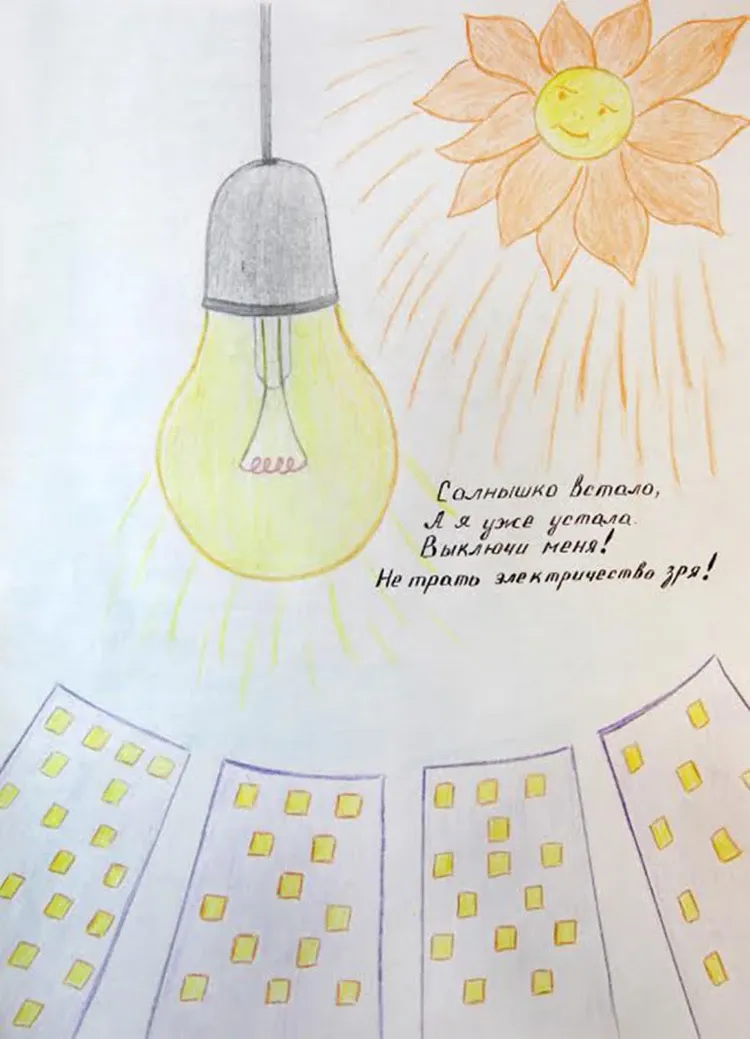 Солнышко встало,
А я уже устала.
Выключи меня!
Не трать электричество зря!